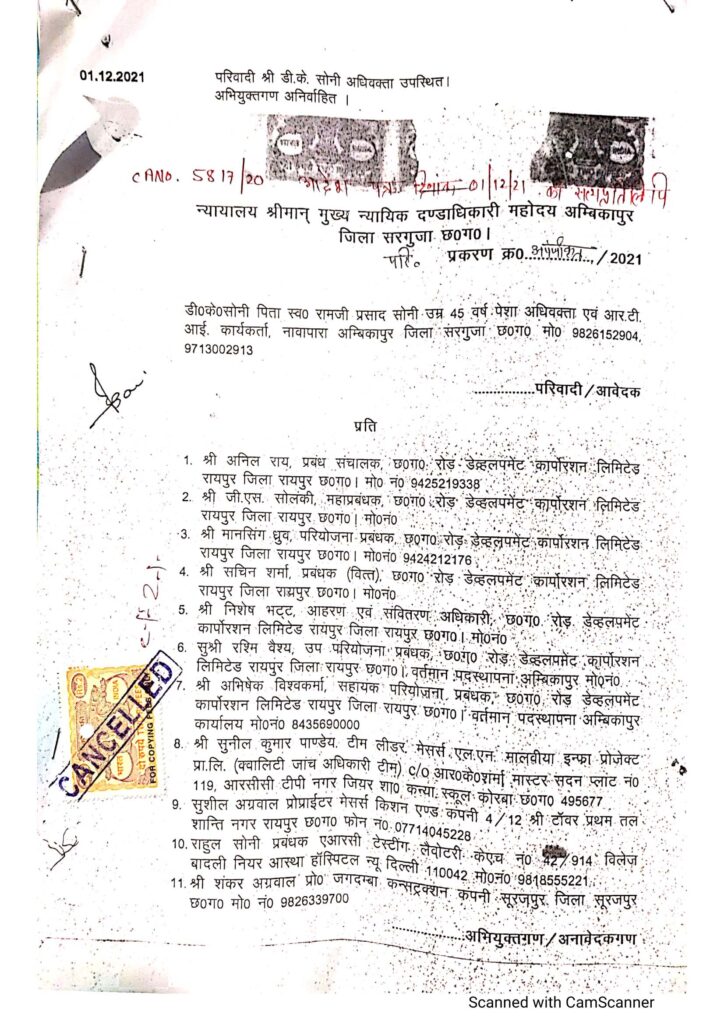 01.12.2021 परिवादी श्री डी.के. सोनी अधिवक्ता उपस्थित।
अभियुक्तगण अनिर्वाहित ।
भारत INDIA
CANO. 5817/20 आदेश पत्र दिनांक 01/12/21 की सत्यप्रतिलिपि
न्यायालय श्रीमान् मुख्य न्यायिक दण्डाधिकारी महोदय अम्बिकापुर
जिला सरगुजा छ0ग0।
परि० प्रकरण क्र0.अपंजीकृत../2021
डी0के0सोनी पिता स्व0 रामजी प्रसाद सोनी उम्र 45 वर्ष पेशा अधिवक्ता एवं आर.टी.
आई. कार्यकर्ता, नावापारा अम्बिकापुर जिला सरगुजा छ0ग0 मो0 9826152904,
9713002913
................परिवादी/आवेदक
प्रति
1. श्री अनिल राय, प्रबंध संचालक, छ0ग0 रोड़ डेव्हलपमेंट कार्पोरशन लिमिटेड
रायपुर जिला रायपुर छ0ग0। मो0 नं0 9425219338
2. श्री जी.एस. सोलंकी, महाप्रबधक, छ0ग0 रोड़ डेव्हलपमेंट कार्पोरशन लिमिटेड
रायपुर जिला रायपुर छ0ग0। मो0नं0
3. श्री मानसिंग ध्रुव, परियोजना प्रबधक, छ0ग0 रोड़ डेव्हलपमेंट कार्पोरशन लिमिटेड
रायपुर जिला रायपुर छ0ग0। मो0नं0 9424212176
4. श्री सचिन शर्मा, प्रबंधक (वित्त), छ0ग0 रोड़ डेव्हलपमेंट कार्पोरशन लिमिटेड
रायपुर जिला रायपुर छ0ग0। मो0नं0
5. श्री निशेष भट्ट, आहरण एवं संवितरण अधिकारी, छ0ग0 रोड़ डेव्हलपमेंट
कार्पोरशन लिमिटेड रायपुर जिला रायपुर छ0ग0। मो0नं0
6. सुश्री रश्मि वैश्य, उप परियोजना प्रबधक, छ0ग0 रोड़ डेव्हलपमेंट कार्पोरशन
लिमिटेड रायपुर जिला रायपुर छ0ग0। वर्तमान पदस्थापना अम्बिकापुर मो0नं0
7. श्री अभिषेक विश्वकर्मा, सहायक परियोजना प्रबधक, छ0ग0 रोड़ डेव्हलपमेंट
कार्पोरशन लिमिटेड रायपुर जिला रायपुर छ0ग0। वर्तमान पदस्थापना अम्बिकापुर
कार्यालय मो0नं0 8435690000
8. श्री सुनील कुमार पाण्डेय, टीम लीडर, मेसर्स एल.एन. मालवीया इन्फ्रा प्रोजेक्ट
प्रा.लि. (क्वालिटी जांच अधिकारी टीम) c/o आर0के0शर्मा मास्टर सदन प्लाट नं0
119, आरसीसी टीपी नगर नियर शा0 कन्या स्कूल कोरबा छ0ग0 495677
9. सुशील अग्रवाल प्रोप्राईटर मेसर्स किशन एण्ड कंपनी 4/12 श्री टॉवर प्रथम तल
शान्ति नगर रायपुर छ0ग0 फोन नं0 07714045228
10. राहुल सोनी प्रबंधक एआरसी टेस्टींग लैवोटरी केएच न0 42/914 विलेज
बादली नियर आस्था हॉस्पिटल न्यू दिल्ली 110042 मो0नं0 9818555221,
11. श्री शंकर अग्रवाल प्रो0 जगदम्बा कन्सट्रक्शन कंपनी सूरजपुर जिला सूरजपुर
छ0ग0 मो0 नं0 9826339700
CANCELLED
FOR COPYING FEES
................अभियुक्तगण/अनावेदकगण
Scanned with CamScanner